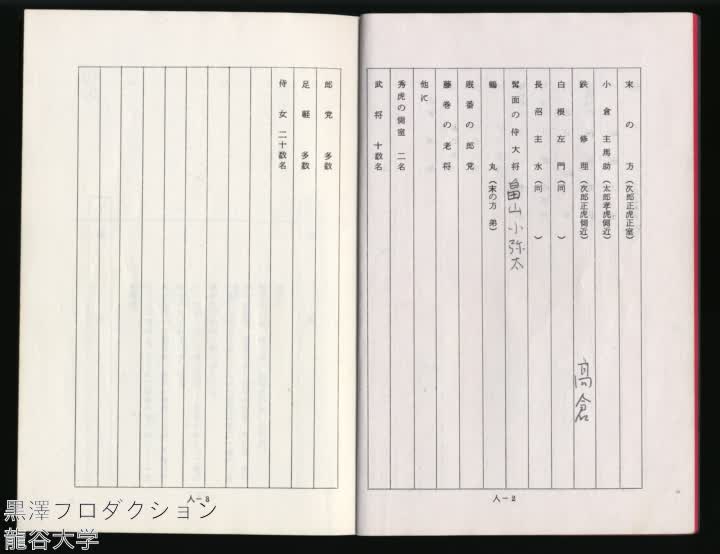 末の方（次郎正虎正室）
小倉主馬助（太郎孝虎側近）
鉄修理（次郎正虎側近）
高倉
白根左門（同）
長沼主水（同）
髯面の侍大将 畠山小弥太
鶴丸（末の方弟）
厩番の郎党
藤巻の老将
他に
秀虎の側室 二名
武将 十数名
人－2
郎党 多数
足軽 多数
侍女 二十数名
人－3
黒澤プロダクション
龍谷大学